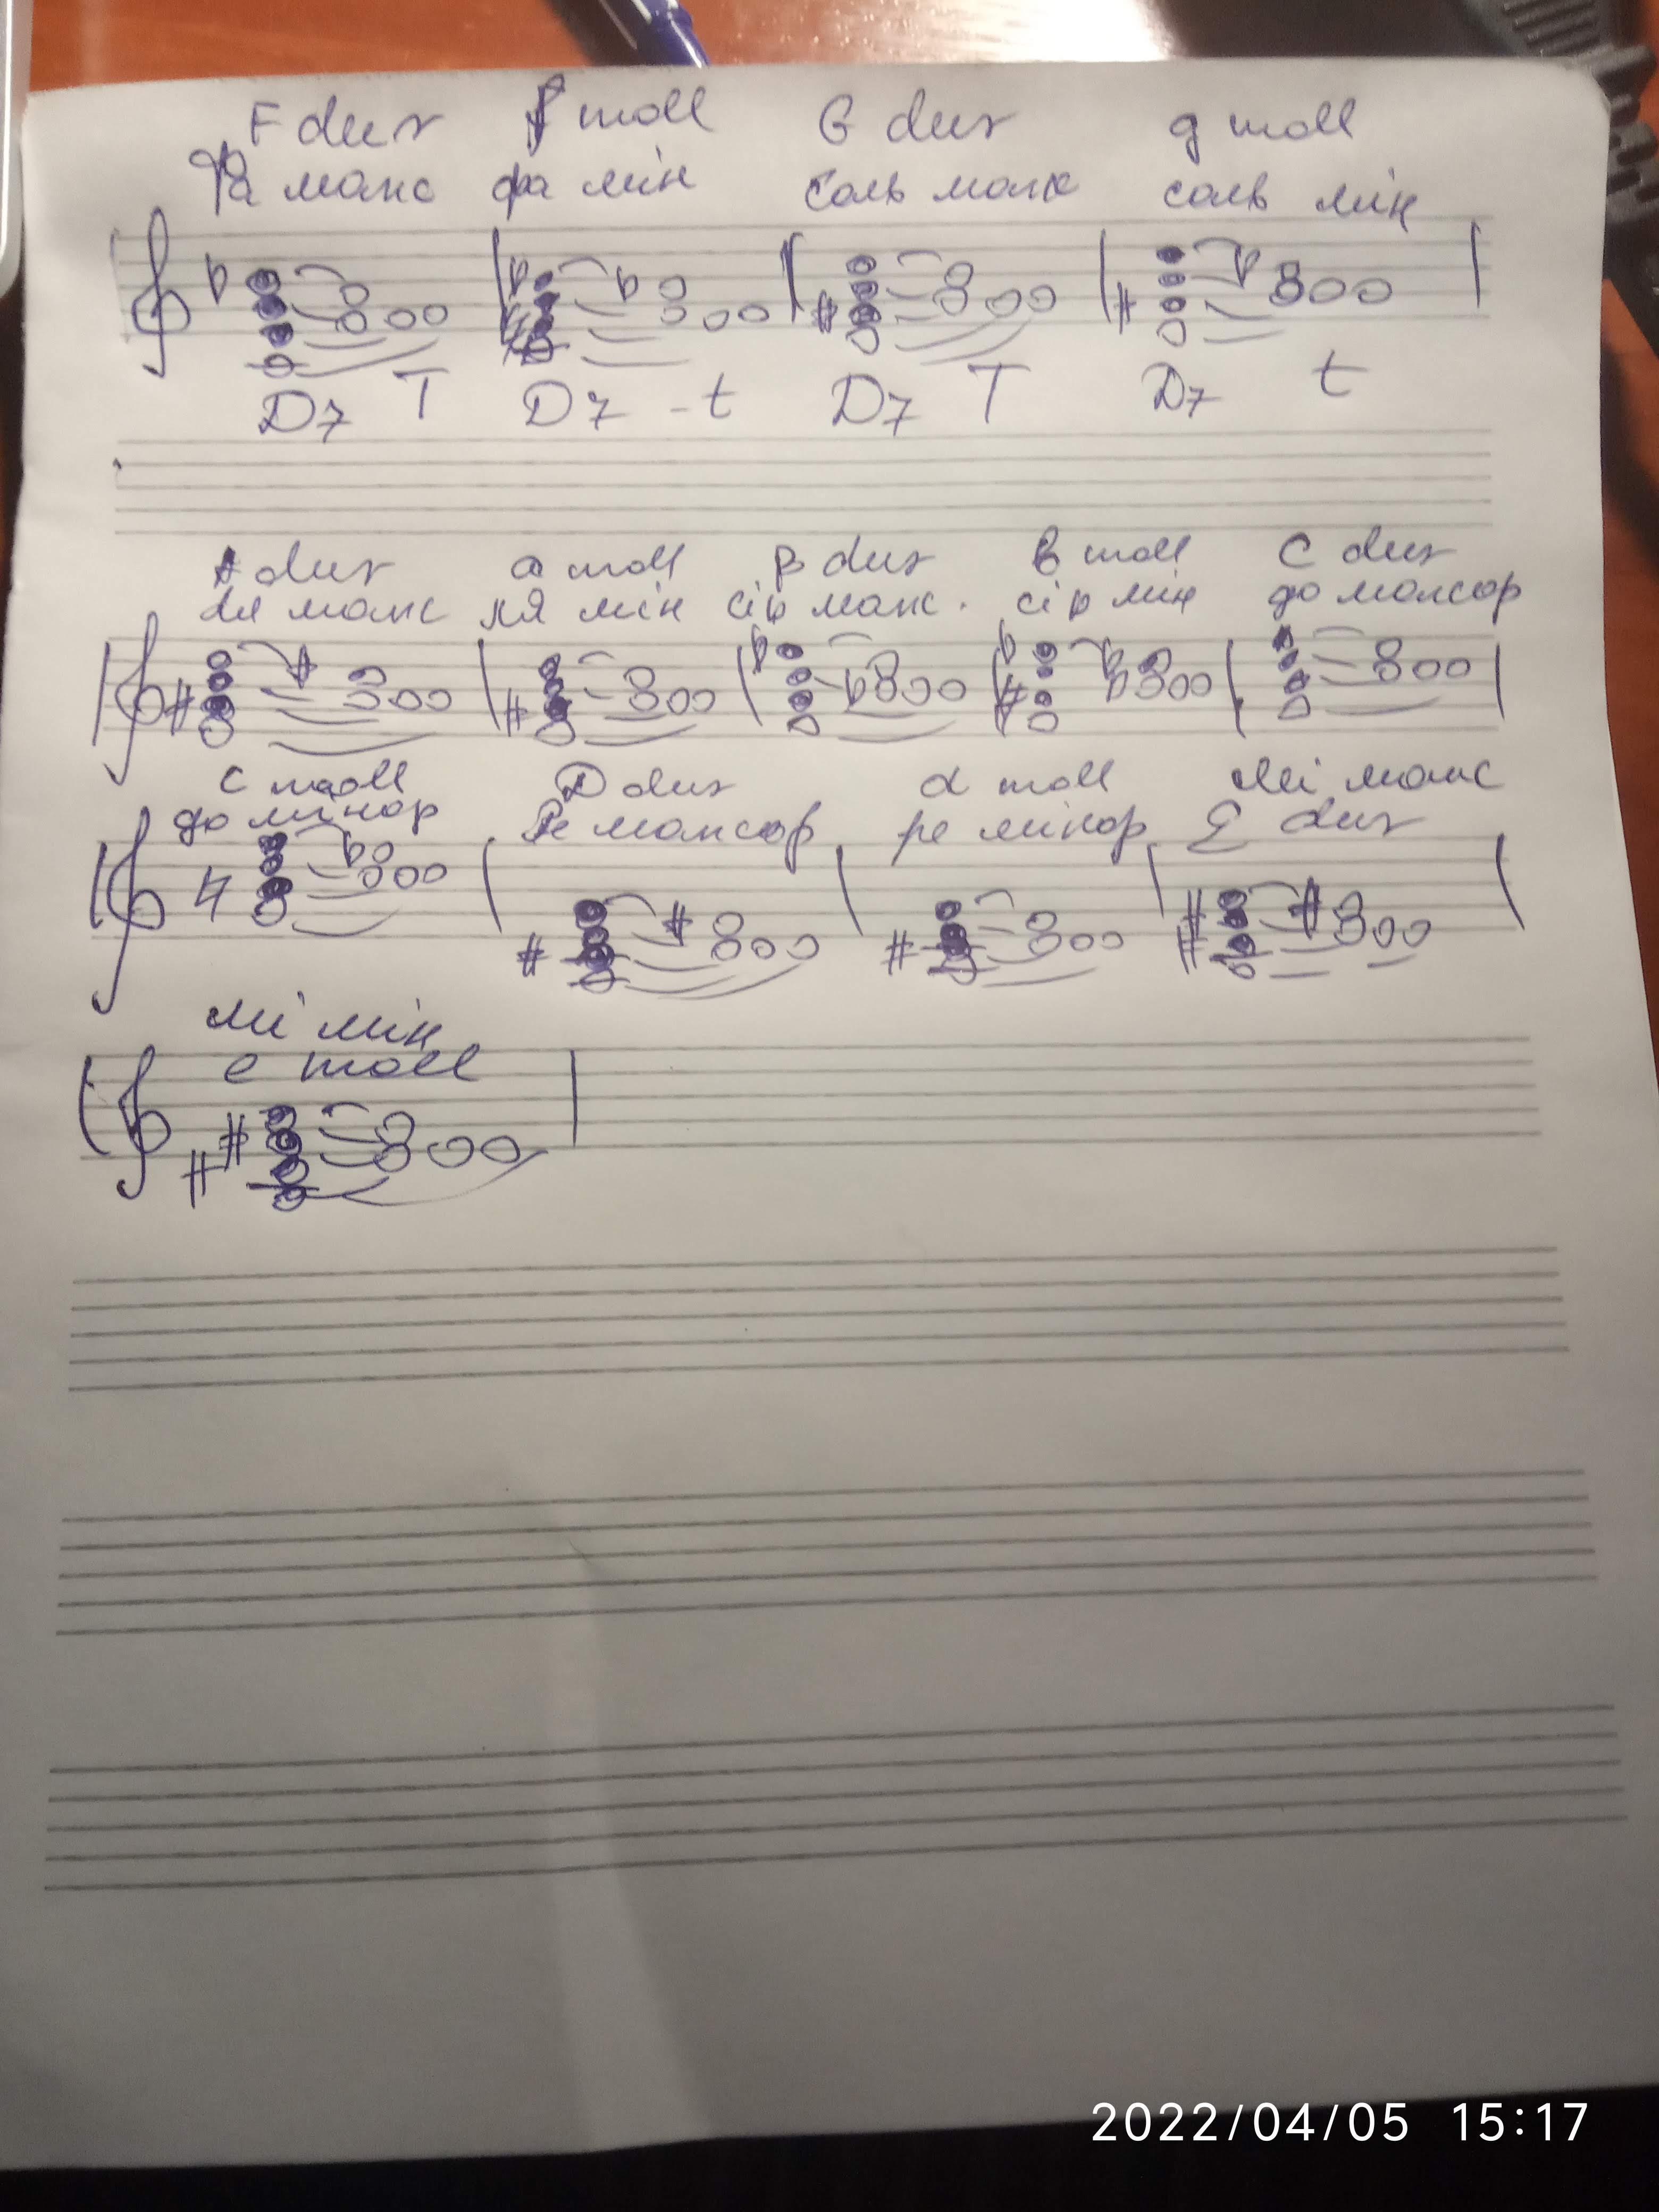 F dur f moll G dur g moll
Фа маж фа мін Соль маж соль мін
D7 T D7 - t D7 T D7 t
A dur a moll B dur b moll C dur
Ля маж ля мін сі b маж. сі b мін до мажор
c moll D dur d moll Мі маж
до мінор Ре мажор ре мінор E dur
мі мін
e moll
2022/04/05 15:17